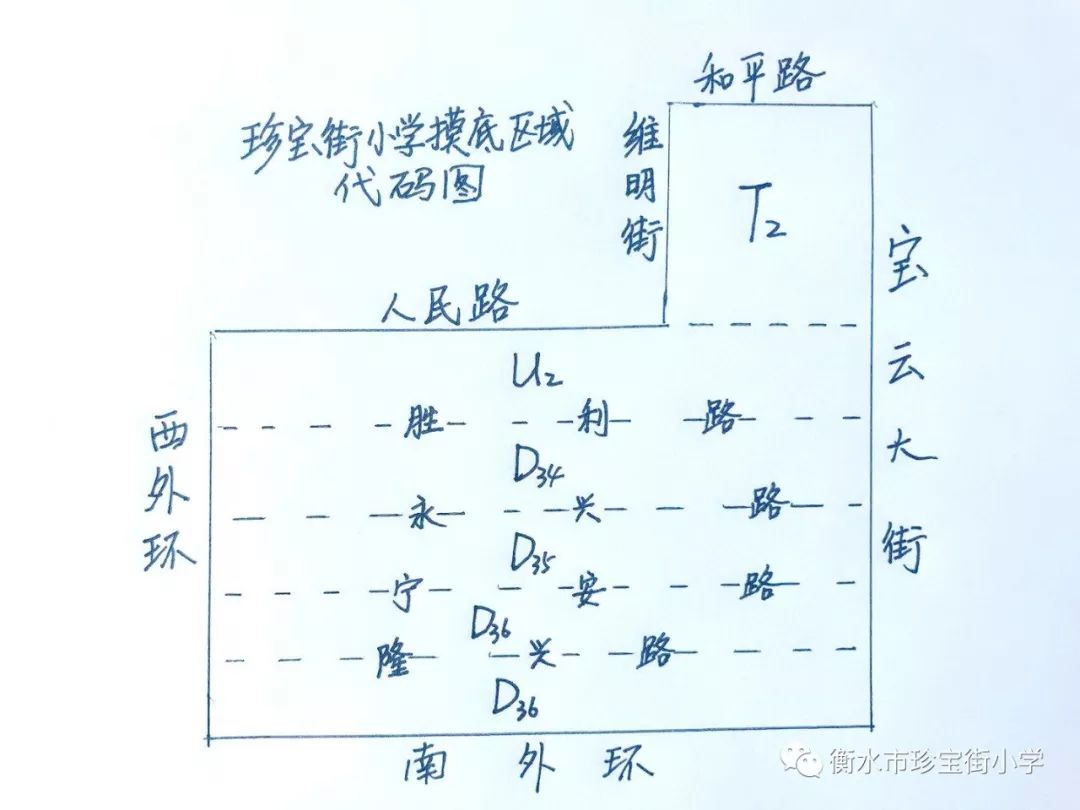 和平路
珍宝街小学摸底区域
代码图
维明街
T2
宝云大街
人民路
U2
胜利路
西外环
D34
永兴路
D35
宁安路
D36
隆兴路
D36
南外环
衡水市珍宝街小学